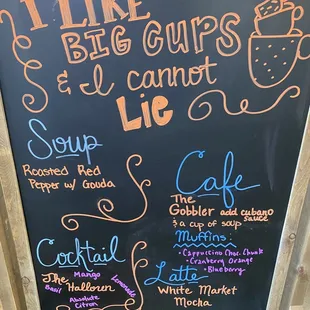 I LIKE
BIG CUPS
& I cannot
LIE
Soup
Roasted Red
Pepper w/ Gouda
Cafe
The
Gobbler add cubano
sauce
& a cup of soup
Muffins:
• Cappuccino Choc. Chunk
• Cranberry Orange
• Blueberry
Cocktail
The Mango
Basil Halloren Lemonade
Absolute
Citron
Latte
White Market
Mocha